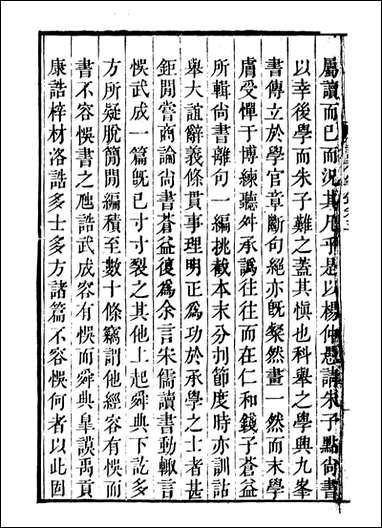 屬讀而已而況其凡乎是以楊仲愚講朱子點尚書
以幸後學而朱子難之蓋其慎也科舉之學興九峯
書傳立於學官章斷句絕亦旣粲然畫一然而末學
膚受憚于博練聽舛承譌往往而在仁和錢子蒼益
所輯尚書離句一編挑截本末分刌節度時亦訓詁
舉大誼辭義條貫事理明正爲功於承學之士者甚
鉅閒嘗商論尚書蒼益復爲余言朱儒讀書動輒言
悞武成一篇旣已寸寸裂之其他上起舜典下訖多
方所疑脫簡閒編積至數十條竊謂他經容有悞而
書不容悞書之虺誥武成容有悞而舜典臯謨禹貢
康誥梓材洛誥多士多方諸篇不容悞何者以此固